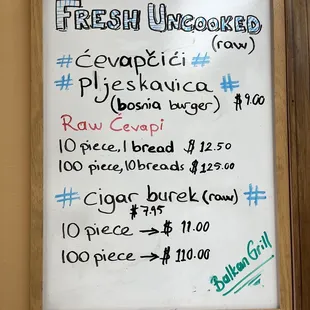 FRESH UNCOOKED
(raw)
# ćevapčići #
# pljeskavica #
(bosnia burger) $9.00
Raw Ćevapi
10 piece, 1 bread $12.50
100 piece, 10 breads $125.00
# cigar burek (raw) #
$7.95
10 piece → $11.00
100 piece → $110.00
Balkan Grill